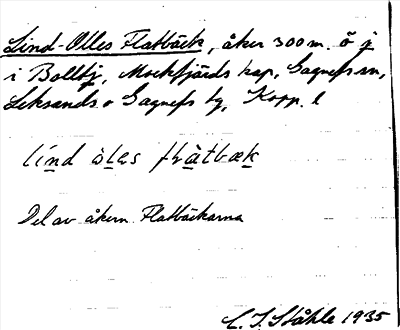 Lind-Olles Flatbäck, åker 300 m. ö g
i Bollbj, Mockfjärds kap, Gagnefs sn,
Leksands o Gagnefs tg, Kopp. l
lind òlas flàtbæk
Del av åkern Flatbäckarna
C. I. Ståhle 1935